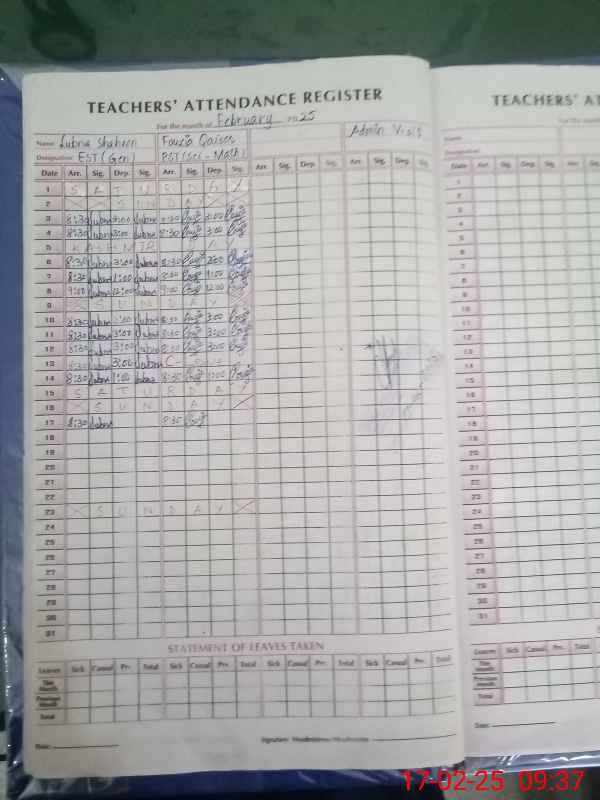 TEACHERS' ATTENDANCE REGISTER
For the month of February 2025
Name Lubna Shaheen Fouzia Qaiser Admin Visit
Designation EST (Gen) PST (Sci-Math)
Date Arr. Sig. Dep. Sig. Arr. Sig. Dep. Sig. Arr. Sig. Dep. Sig. Arr. Sig. Dep. Sig.
1 S A T U R D A Y
2 S U N D A Y
3 8:30 Lubna 3:00 Lubna 8:30 3:00
4 8:30 Lubna 3:00 Lubna 8:30 3:00
5 KASHMIR DAY
6 8:30 Lubna 3:00 Lubna 8:30 3:00
7 8:30 Lubna 1:00 Lubna 8:30 1:00
8 9:00 Lubna 12:00 Lubna 9:00 12:00
9 S U N D A Y
10 8:30 Lubna 3:00 Lubna 8:30 3:00
11 8:30 Lubna 3:00 Lubna 8:30 3:00
12 8:30 Lubna 3:00 Lubna 8:30 3:00
13 8:30 Lubna 3:00 Lubna
14 8:30 Lubna 1:00 Lubna 8:30 1:00
15 S A T U R D A Y
16 S U N D A Y
17 8:30 Lubna 8:30
18
19
20
21
22
23 S U N D A Y
24
25
26
27
28
29
30
31
STATEMENT OF LEAVES TAKEN
Leaves Sick Casual Prv. Total Sick Casual Prv. Total Sick Casual Prv. Total Sick Casual Prv. Total
This Month
Previous Month
Total
Date: Signature Headmistress/Headmaster
TEACHERS' AT
For the mo
Name
Designation
Date Arr. Sig. Dep. Sig. Arr. Sig.
1
2
3
4
5
6
7
8
9
10
11
12
13
14
15
16
17
18
19
20
21
22
23
24
25
26
27
28
29
30
31
Leaves Sick Casual Prv. Total Sick
This Month
Previous Month
Total
Date:
17-02-25 09:37